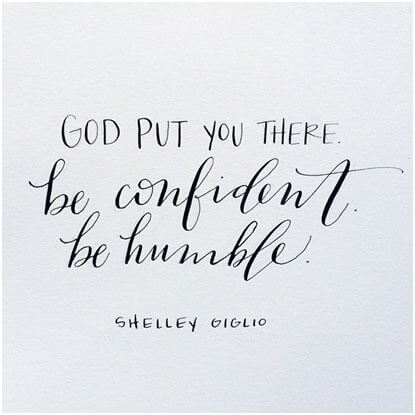 GOD PUT YOU THERE.
be confident.
be humble.
SHELLEY GIGLIO